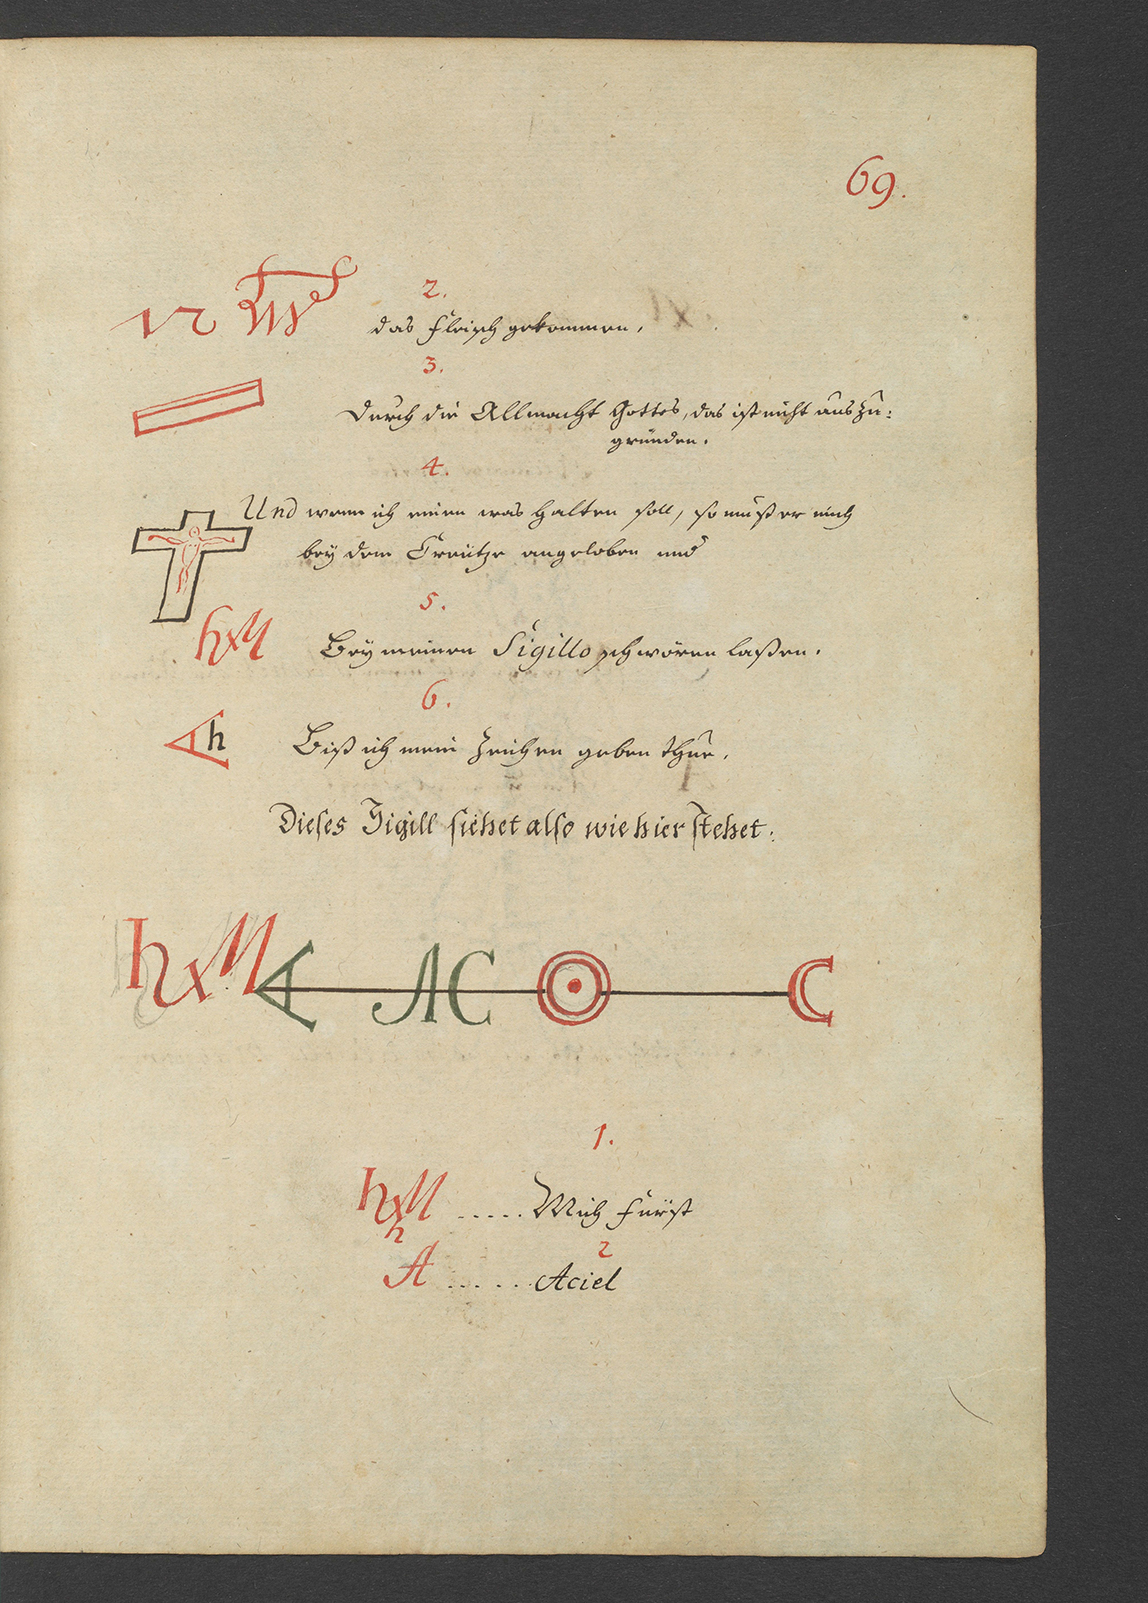 69.
2.
das Fleisch gekommen.
3.
Durch die Allmacht Gottes, das ist nicht auszu-
gründen.
4.
Und wenn ich einen was halten soll, so muß er mich
bey dem Creütze angeloben und
5.
hxM Bey meinen Sigillo schwören laßen.
6.
A h Biß ich mein Zeichen geben thue.
Dieses Sigill siehet also wie hier stehet:
hxM A AC C
1.
hxM ..... Mich Fürst
h
2
A ...... Aciel